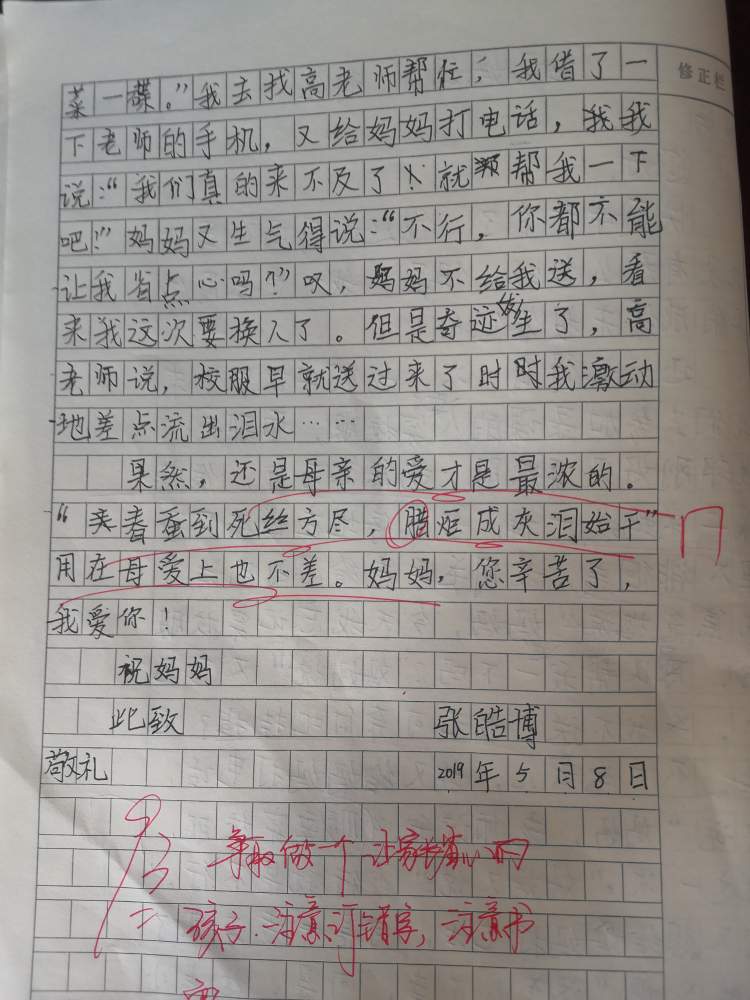 修正栏
菜一碟。”我去找高老师帮忙；我借了一
下老师的手机，又给妈妈打电话，我我
说：“我们真的来不及了就帮我一下
吧！”妈妈又生气得说：“不行，你都不能
让我省点心吗？”叹，妈妈不给我送，看
来我这次要换人了。但是奇迹发生了，高
老师说，校服早就送过来了时时我激动
地差点流出泪水……
果然，还是母亲的爱才是最浓的。
“春蚕到死丝方尽，腊炬成灰泪始干”
用在母爱上也不差。妈妈，您辛苦了，
我爱你！
祝妈妈
此致 张皓博
敬礼 2019年5月8日
争取做一个让家长省心的
孩子.注意订错字，注意书